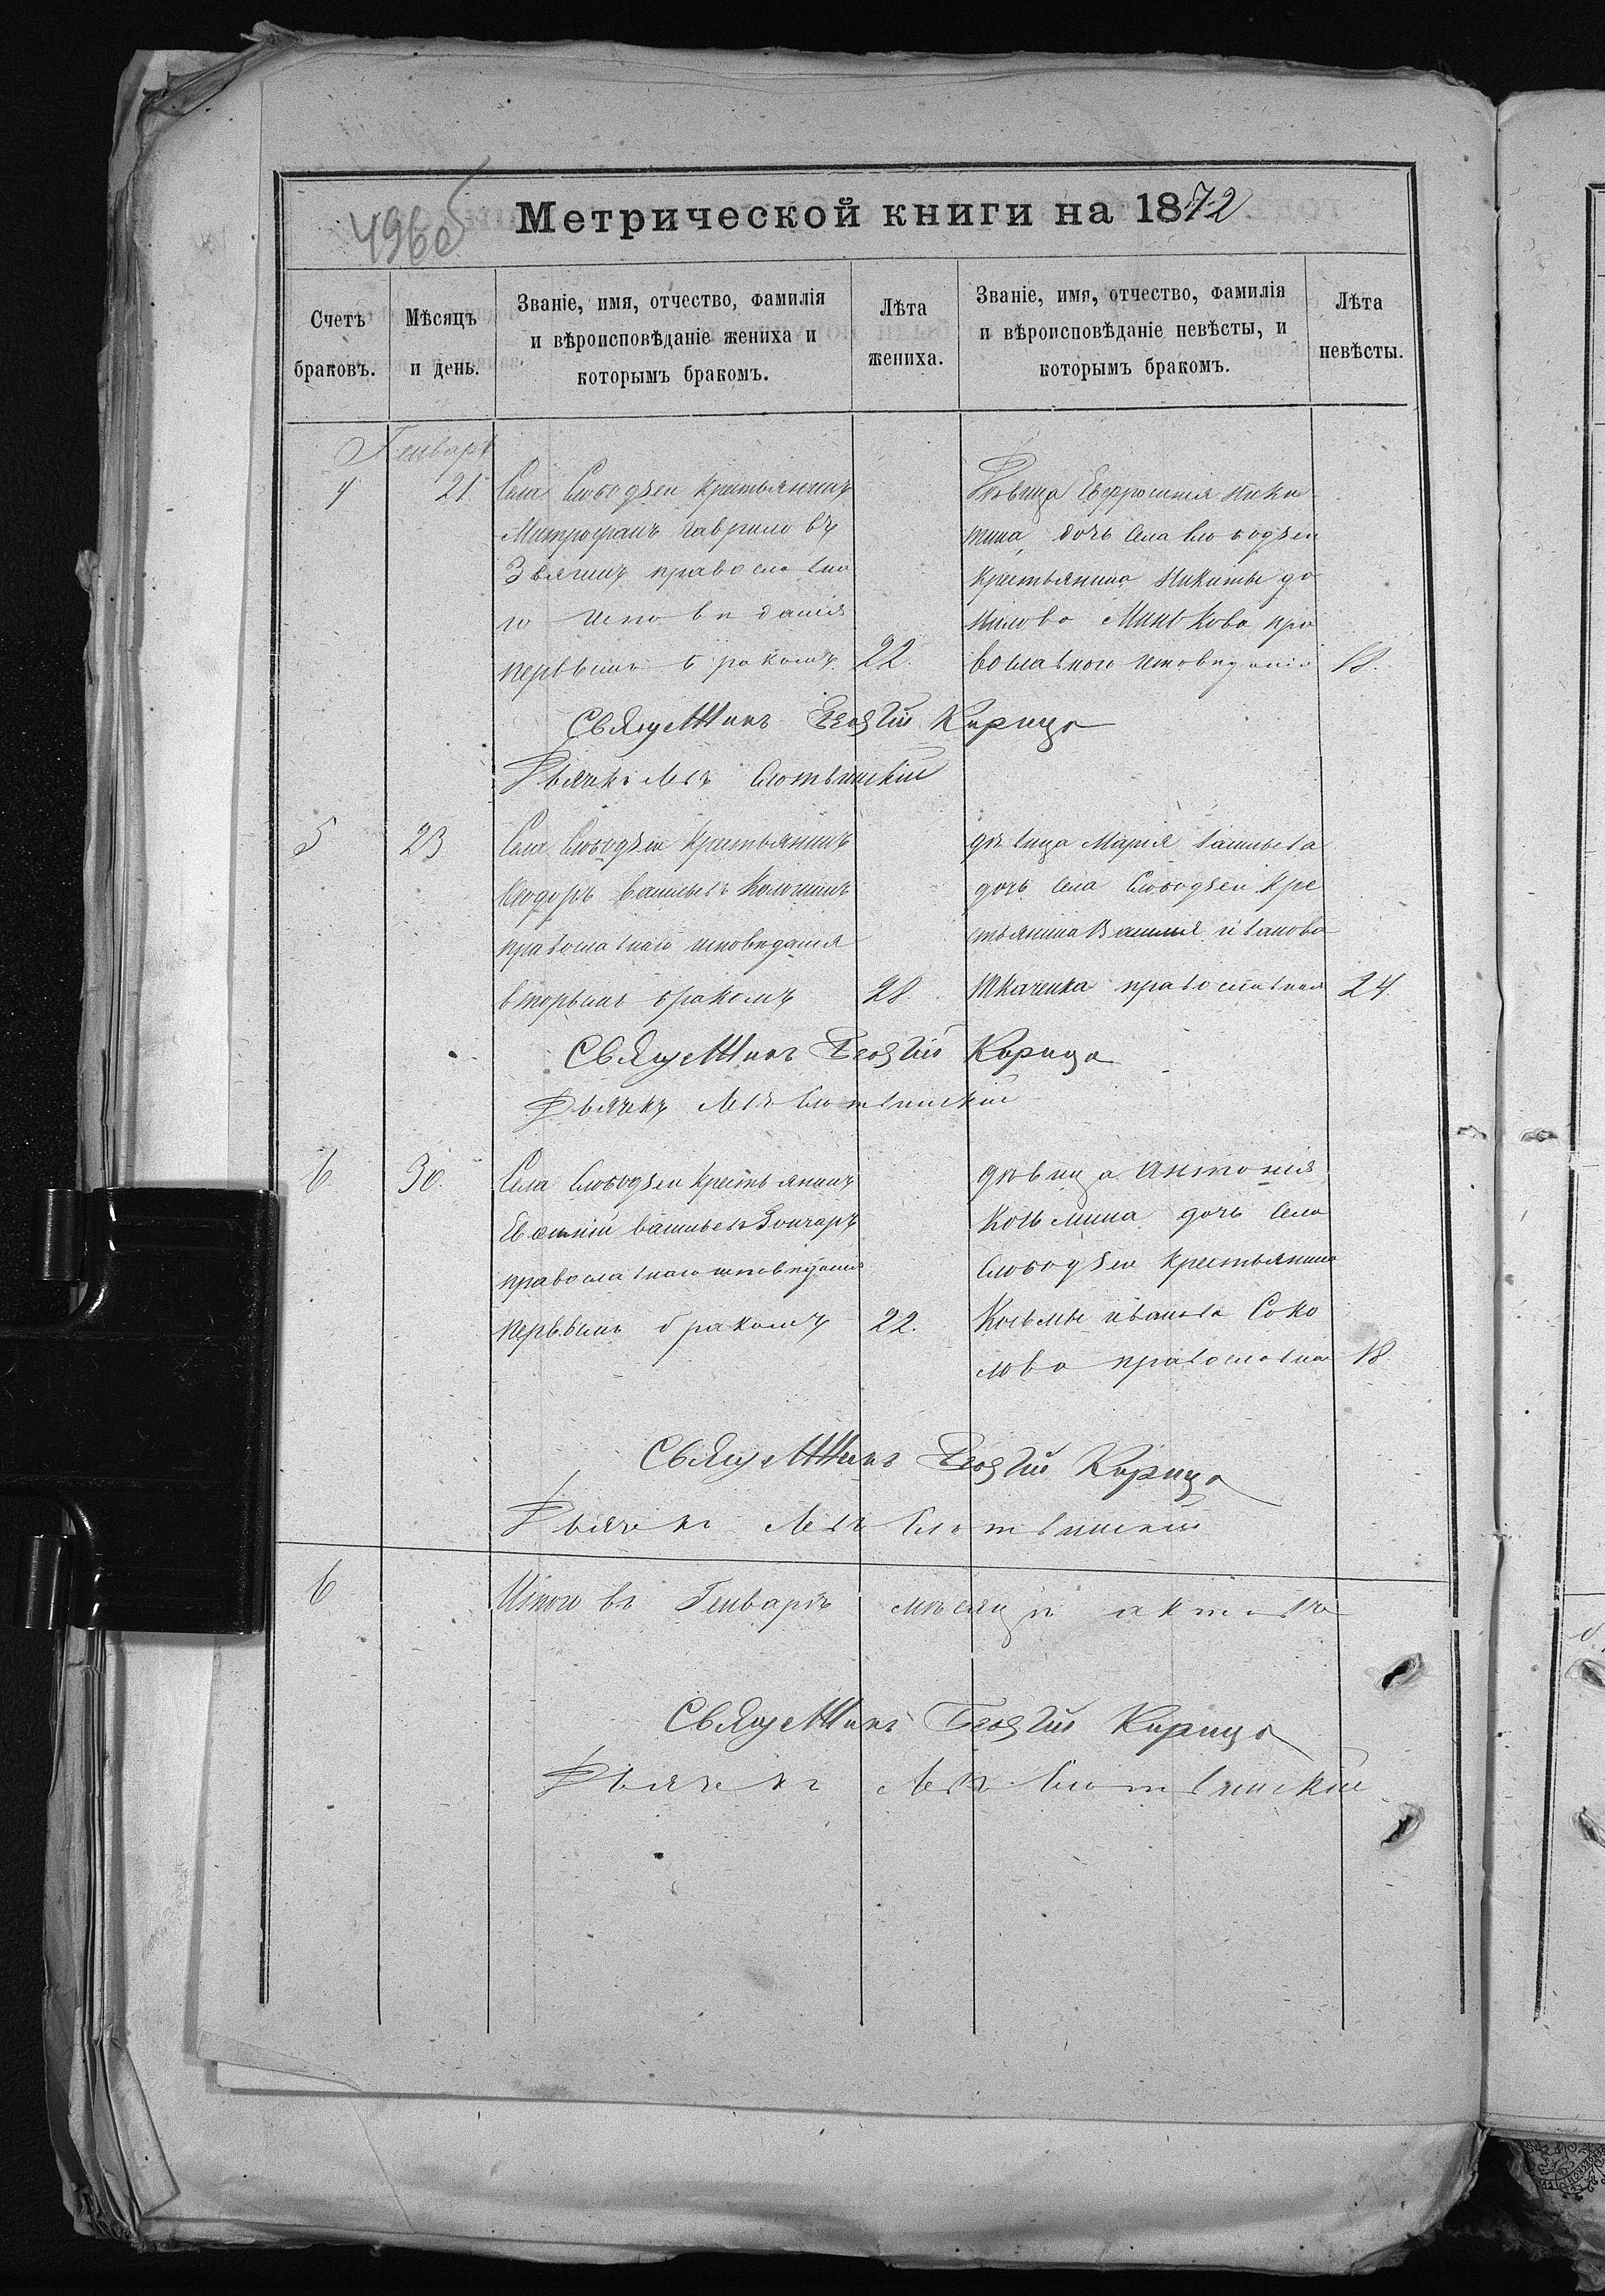 496об
Метрической книги на 1872
Счетъ браковъ.
Мѣсяцъ и день.
Званіе, имя, отчество, фамилія
и вѣроисповѣданіе жениха и
которымъ бракомъ.
Лѣта жениха.
Званіе, имя, отчество, фамилія
и вѣроисповѣданіе невѣсты, и
которымъ бракомъ.
Лѣта невѣсты.
Генварь
4 21. Села Слободзеи крестьянинъ
Митрофанъ Гавриловъ
Звягинъ православна
го исповѣданія
первымъ бракомъ. 22.
Дѣвица Евфросинія Ники
тина, дочь села Слободзеи
крестьянина Никиты
Минькова пра
вославного исповѣданія 18.
Священникъ Георгій Кирица
Дьячекъ Левъ
5 23 Села Слободзеи крестьянинъ
Ѳеодоръ Васильевъ
православнаго исповѣданія
вторымъ бракомъ 28.
дѣвица Марія Васильева
дочь села Слободзеи кре
стьянина Василія Иванова
Ткаченка православная 24.
Священникъ Георгій Кирица
Дьячекъ Левъ
6 30. Села Слободзеи крестьянинъ
Васильевъ Гончаръ
православнаго исповѣданія
первымъ бракомъ 22.
дѣвица Антонія
Козьмина дочь села
Слободзеи крестьянина
Козьмы Иванова Соко
лова православная 18.
Священникъ Георгій Кирица
Дьячекъ Левъ
6 Итого въ Генварѣ мѣсяцѣ актовъ
Священникъ Георгій Кирица
Дьячекъ Левъ